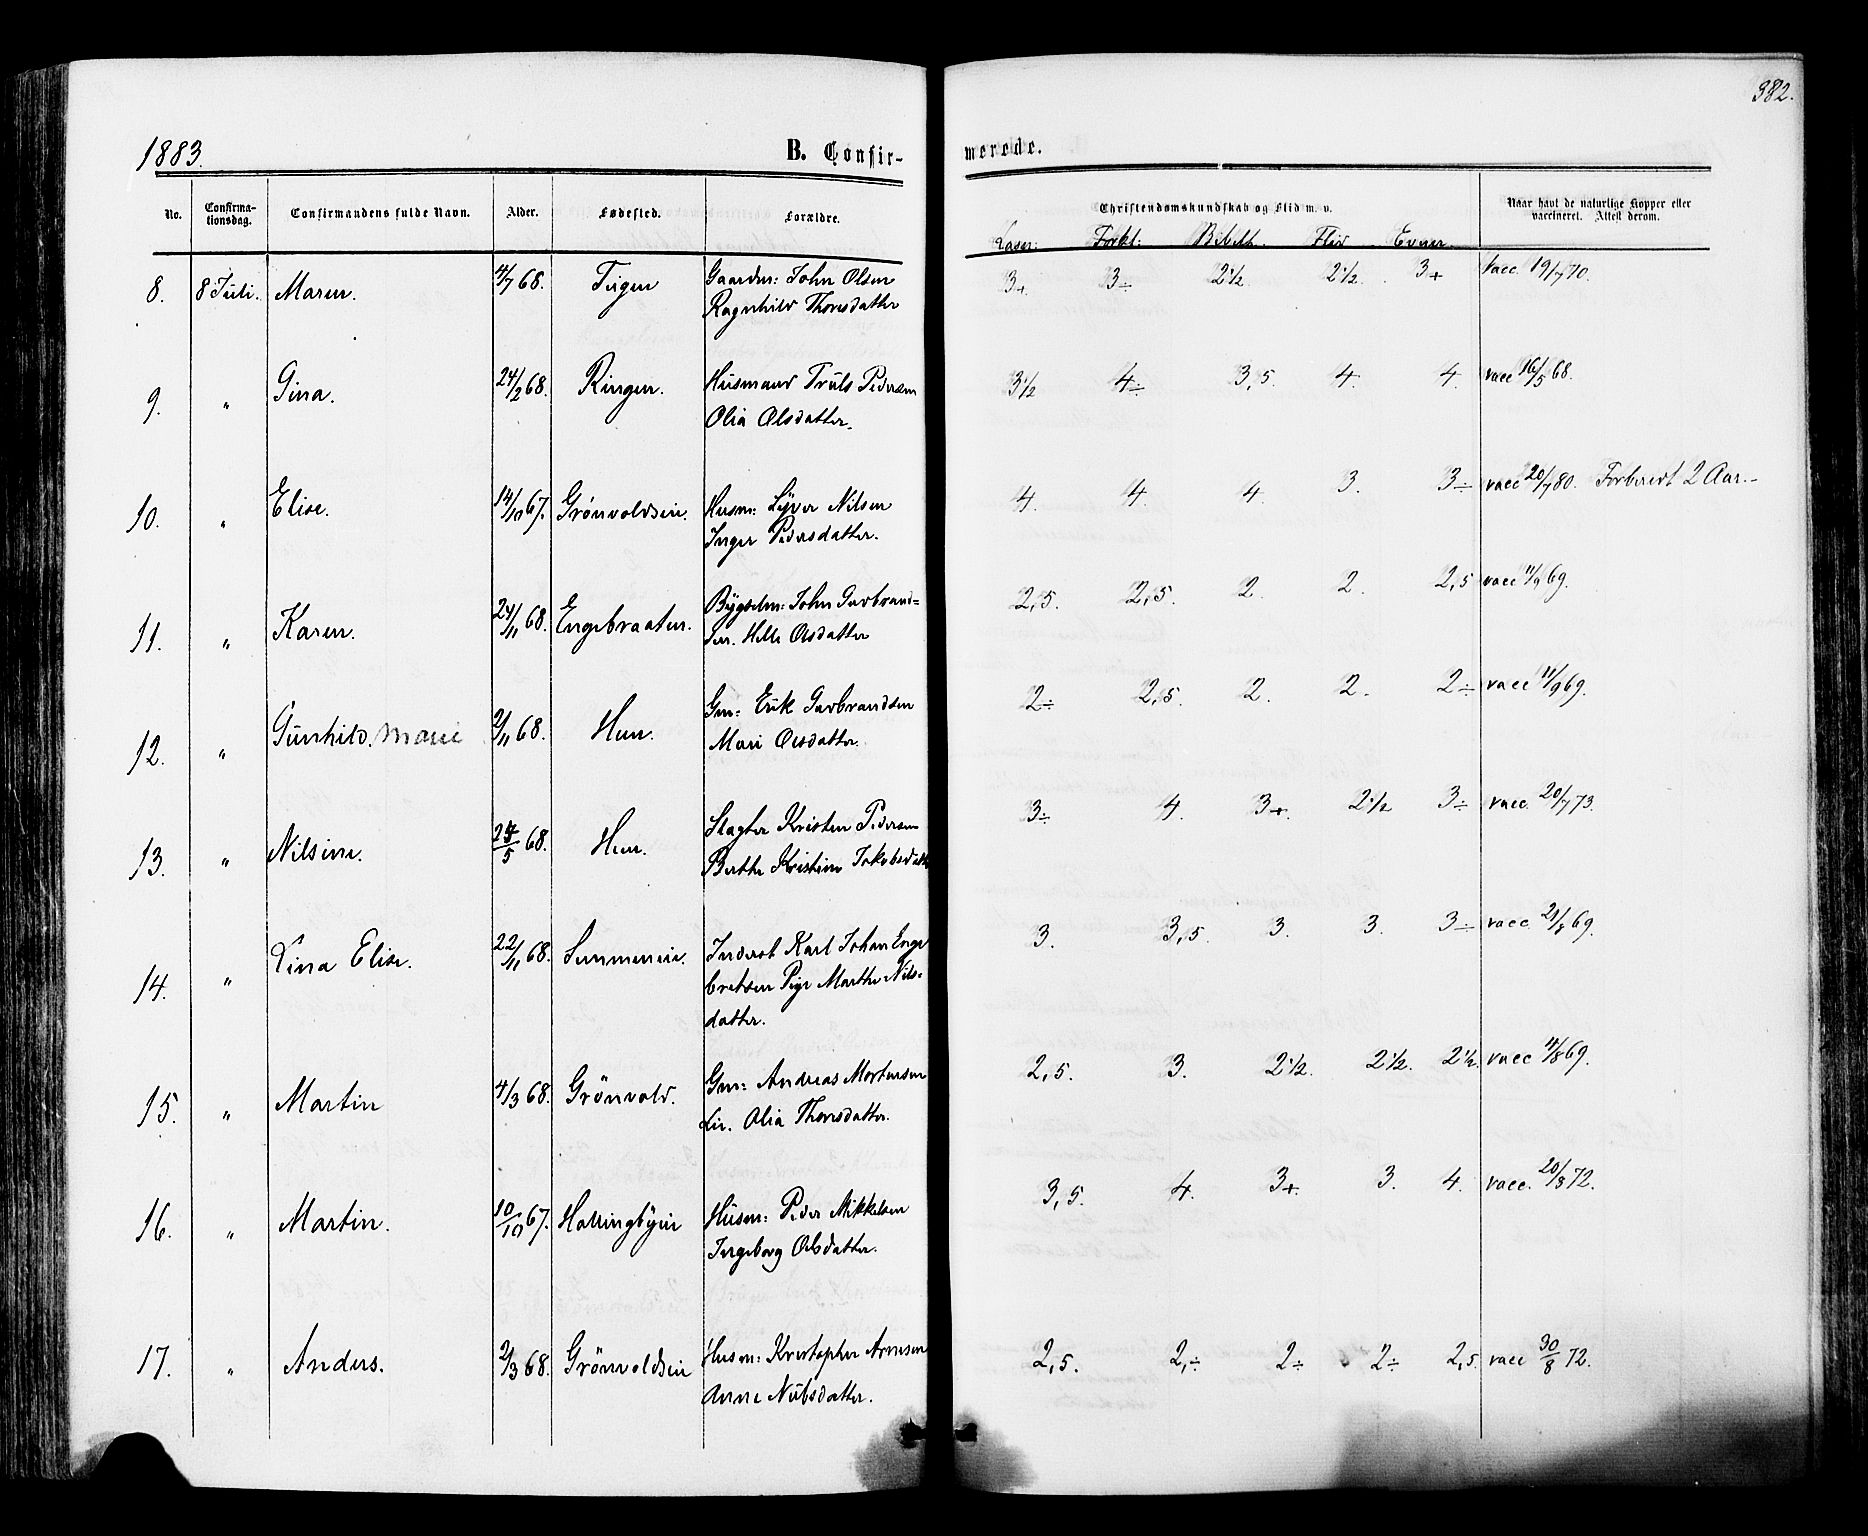 382.
1883.
B. Confir-
merede.
No.
Confirma-
tionsdag.
Confirmandens fulde Navn.
Alder.
Fødested.
Forældre.
Christendomskundskab og Flid m. v.
Naar havt de naturlige Kopper eller
vaccineret. Attest derom.
Læsn: Forkl: Bibelh. Flid Evner
8. 8 Juli. Maren. 4/7 68. Tirgen Gaardm: John Olsen 3+ 3÷ 2 1/2 2 1/2 3+ Vacc. 19/7 70.
Ragnhild Thorsdatter
9. " Gina. 24/2 68. Ringen. Husmand Truls Pedersen 3 1/2 4÷ 3,5. 4. 4. vacc 16/5 68.
Olia Olsdatter.
10. " Elise. 14/10 67. Grønvoldseie. Husm: Syver Nilsen 4. 4. 4. 3. 3÷ vacc 20/7 80. Forberedt 2 Aar.-
Inger Pedersdatter.
11. " Karen. 24/11 68. Engebraaten. Bygselm: John Gulbrand= 2,5. 2,5. 2. 2. 2,5 vacc 11/9 69.
sen. Helle Olsdatter
12. " Gunhild. Marie 2/11 68. Hun. Gm: Erik Gulbrandsen 2÷ 2,5. 2. 2. 2÷ vacc 11/9 69.
Mari Olsdatter.
13. " Nilsine. 24/5 68. Hun. Slagter Kristen Pedersen 3÷ 4. 3+. 2 1/2 3÷ vacc. 20/7 73.
Berthe Kristine Jakobsdatt
14. " Lina Elise. 22/11 68. Semmeneie. Inderst Karl Johan Enge 3. 3,5. 3. 3. 3÷ vacc. 21/8 69.
bretsen Pige Marthe Nils-
datter.
15. " Martin 4/3 68. Grönvold. Gm: Andreas Mortensen 2,5. 3. 2 1/2. 2 1/2. 2 1/2. vacc 4/8 69.
Lie. Olia Thorsdatter.
16. " Martin. 10/10 67. Hallingbyeie Husm: Peder Mikkelsen 3,5. 4. 3+. 3. 4. vacc. 20/8 72.
Ingeborg Olsdatter.
17. " Anders. 2/3 68. Grönvoldseie Husm: Kristopher Arnesen 2,5. 2,÷ 2÷ 2÷ 2,5. vacc 30/8 72.
Anne Nilsdatter.